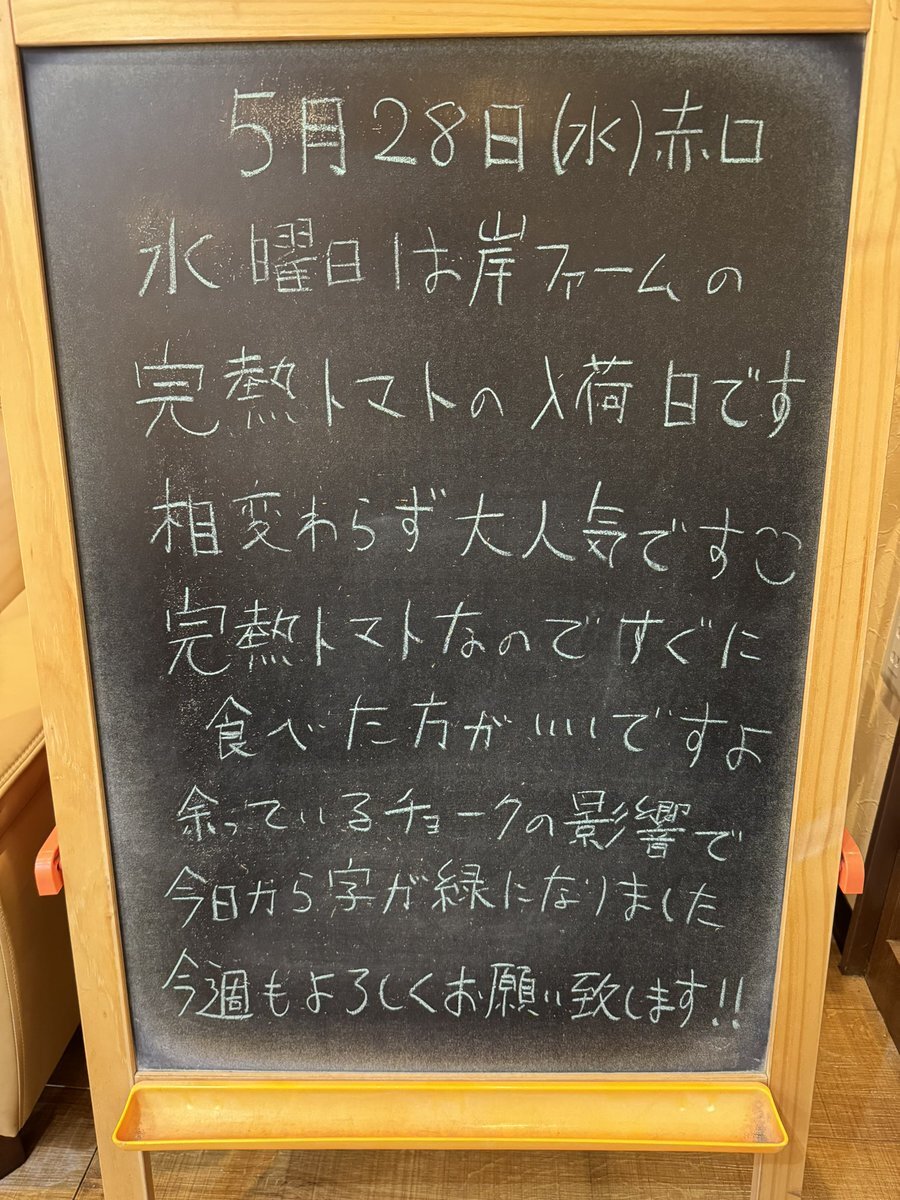 5月28日(水)赤口
水曜日は岸ファームの
完熟トマトの入荷日です
相変わらず大人気ですこ
完熟トマトなのですぐに
食べた方がいいですよ
余っているチョークの影響で
今日から字が緑になりました
今週もよろしくお願い致します!!